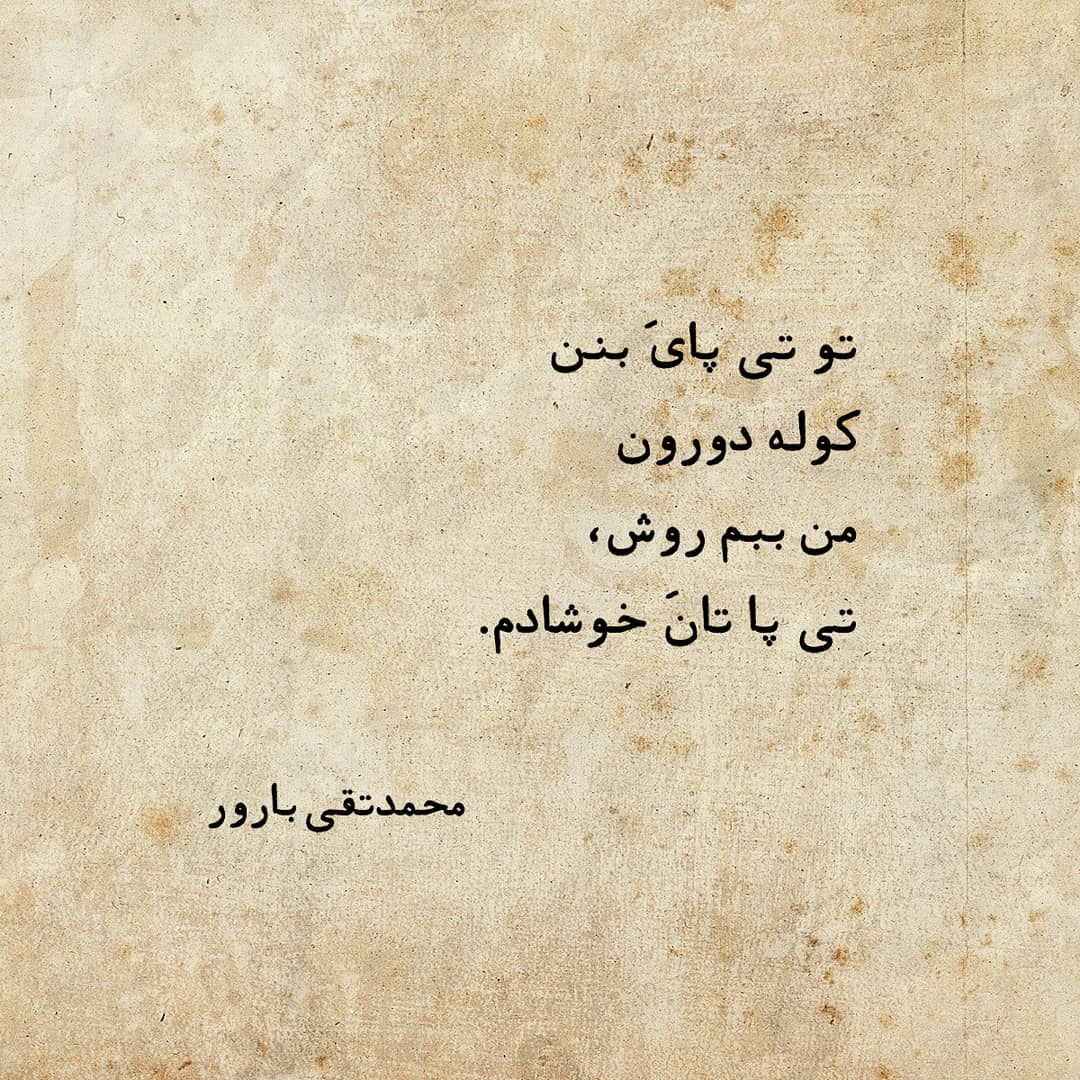 تو تی پایَ بنن
کوله دورون
من ببم روش،
تی پا تانَ خوشادم.
محمدتقی بارور